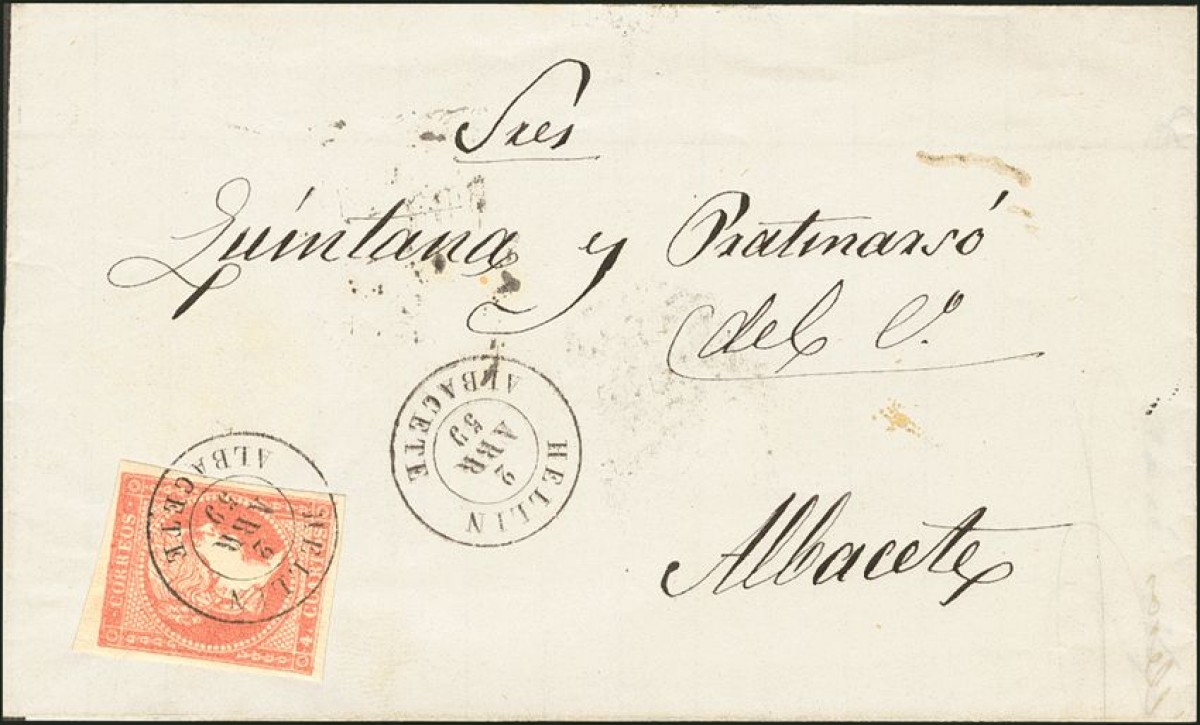 Sres
Quintana y Pratmarsó
del C.º
Albacete
HELLIN
2
ABR
59
ALBACETE
HELLIN
2
ABR
59
ALBACETE
CORREOS
4 CUART